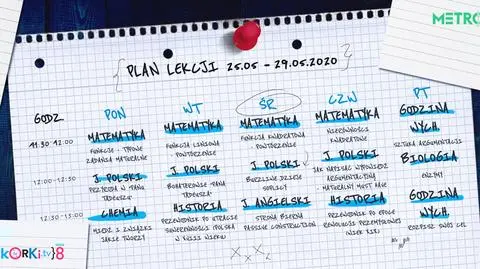 METRO
PLAN LEKCJI 25.05 - 29.05.2020
GODZ. PON WT ŚR CZW PT
11:30-12:00
MATEMATYKA
FUNKCJE - TYPOWE
ZADANIA MATURALNE
MATEMATYKA
FUNKCJA LINIOWA
- POWTÓRZENIE
MATEMATYKA
FUNKCJA KWADRATOWA
- POWTÓRZENIE
MATEMATYKA
NIERÓWNOŚCI
KWADRATOWE
GODZINA
WYCH.
SZTUKA ARGUMENTACJI
12:00-12:30
J. POLSKI
PRZYRODA W "PANU
TADEUSZU"
J. POLSKI
BOHATEROWIE "PANA
TADEUSZA"
J. POLSKI
BURZLIWE DZIEJE
SOPLICY
J. POLSKI
JAK NAPISAĆ WYPOWIEDŹ
ARGUMENTACYJNĄ
- MATURALNY MUST HAVE
BIOLOGIA
ENZYMY
12:30-13:00
CHEMIA
MIEDŹ I ZWIĄZKI
JAKIE TWORZY
HISTORIA
PRZEWODNIK PO UTRACIE
SUWERENNOŚCI POLSKI
W XVIII WIEKU
J. ANGIELSKI
STRONA BIERNA
PASSIVE CONSTRUCTION
HISTORIA
PRZEWODNIK PO EPOCE
PRZEMYSŁOWEJ
WIEK XIX
GODZINA
WYCH.
ROZPISZ SWÓJ CEL
kORKi.tv 8